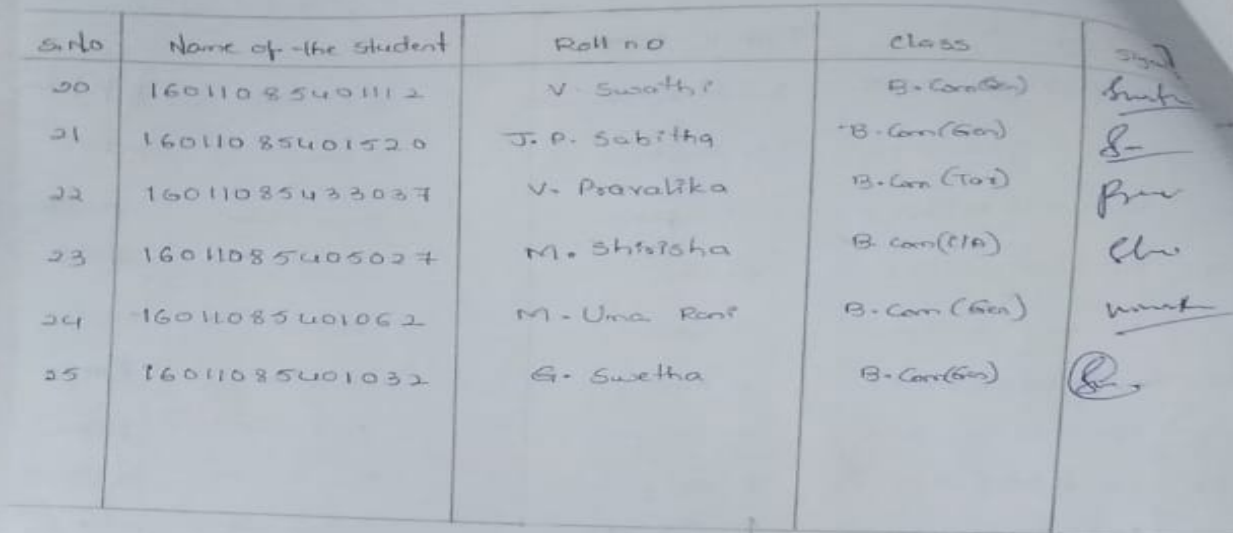 S.No Name of the student Roll no Class Signal
20 16011085401112 V. Swathi B.Com(Gen)
21 16011085401520 J. P. Sabitha B.Com(Gen)
22 16011085433037 V. Pravalika B.Com (Tax)
23 16011085405027 M. Shirisha B.Com(C/A)
24 16011085401062 M. Uma Rani B.Com (Gen)
25 16011085401032 G. Swetha B.Com(Gen)